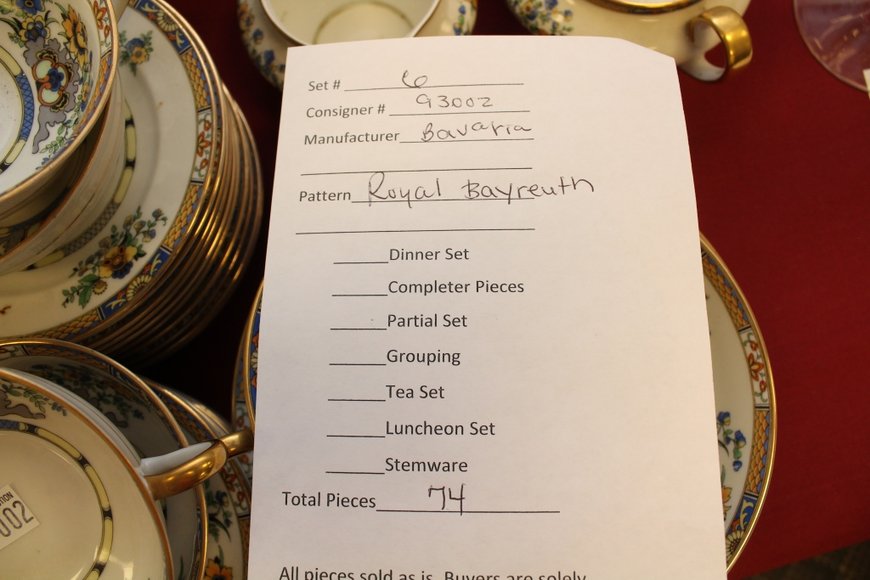 Set # 6
Consigner # 93002
Manufacturer Bavaria
Pattern Royal Bayreuth
Dinner Set
Completer Pieces
Partial Set
Grouping
Tea Set
Luncheon Set
Stemware
Total Pieces 74
All pieces sold as is. Buyers are solely
002